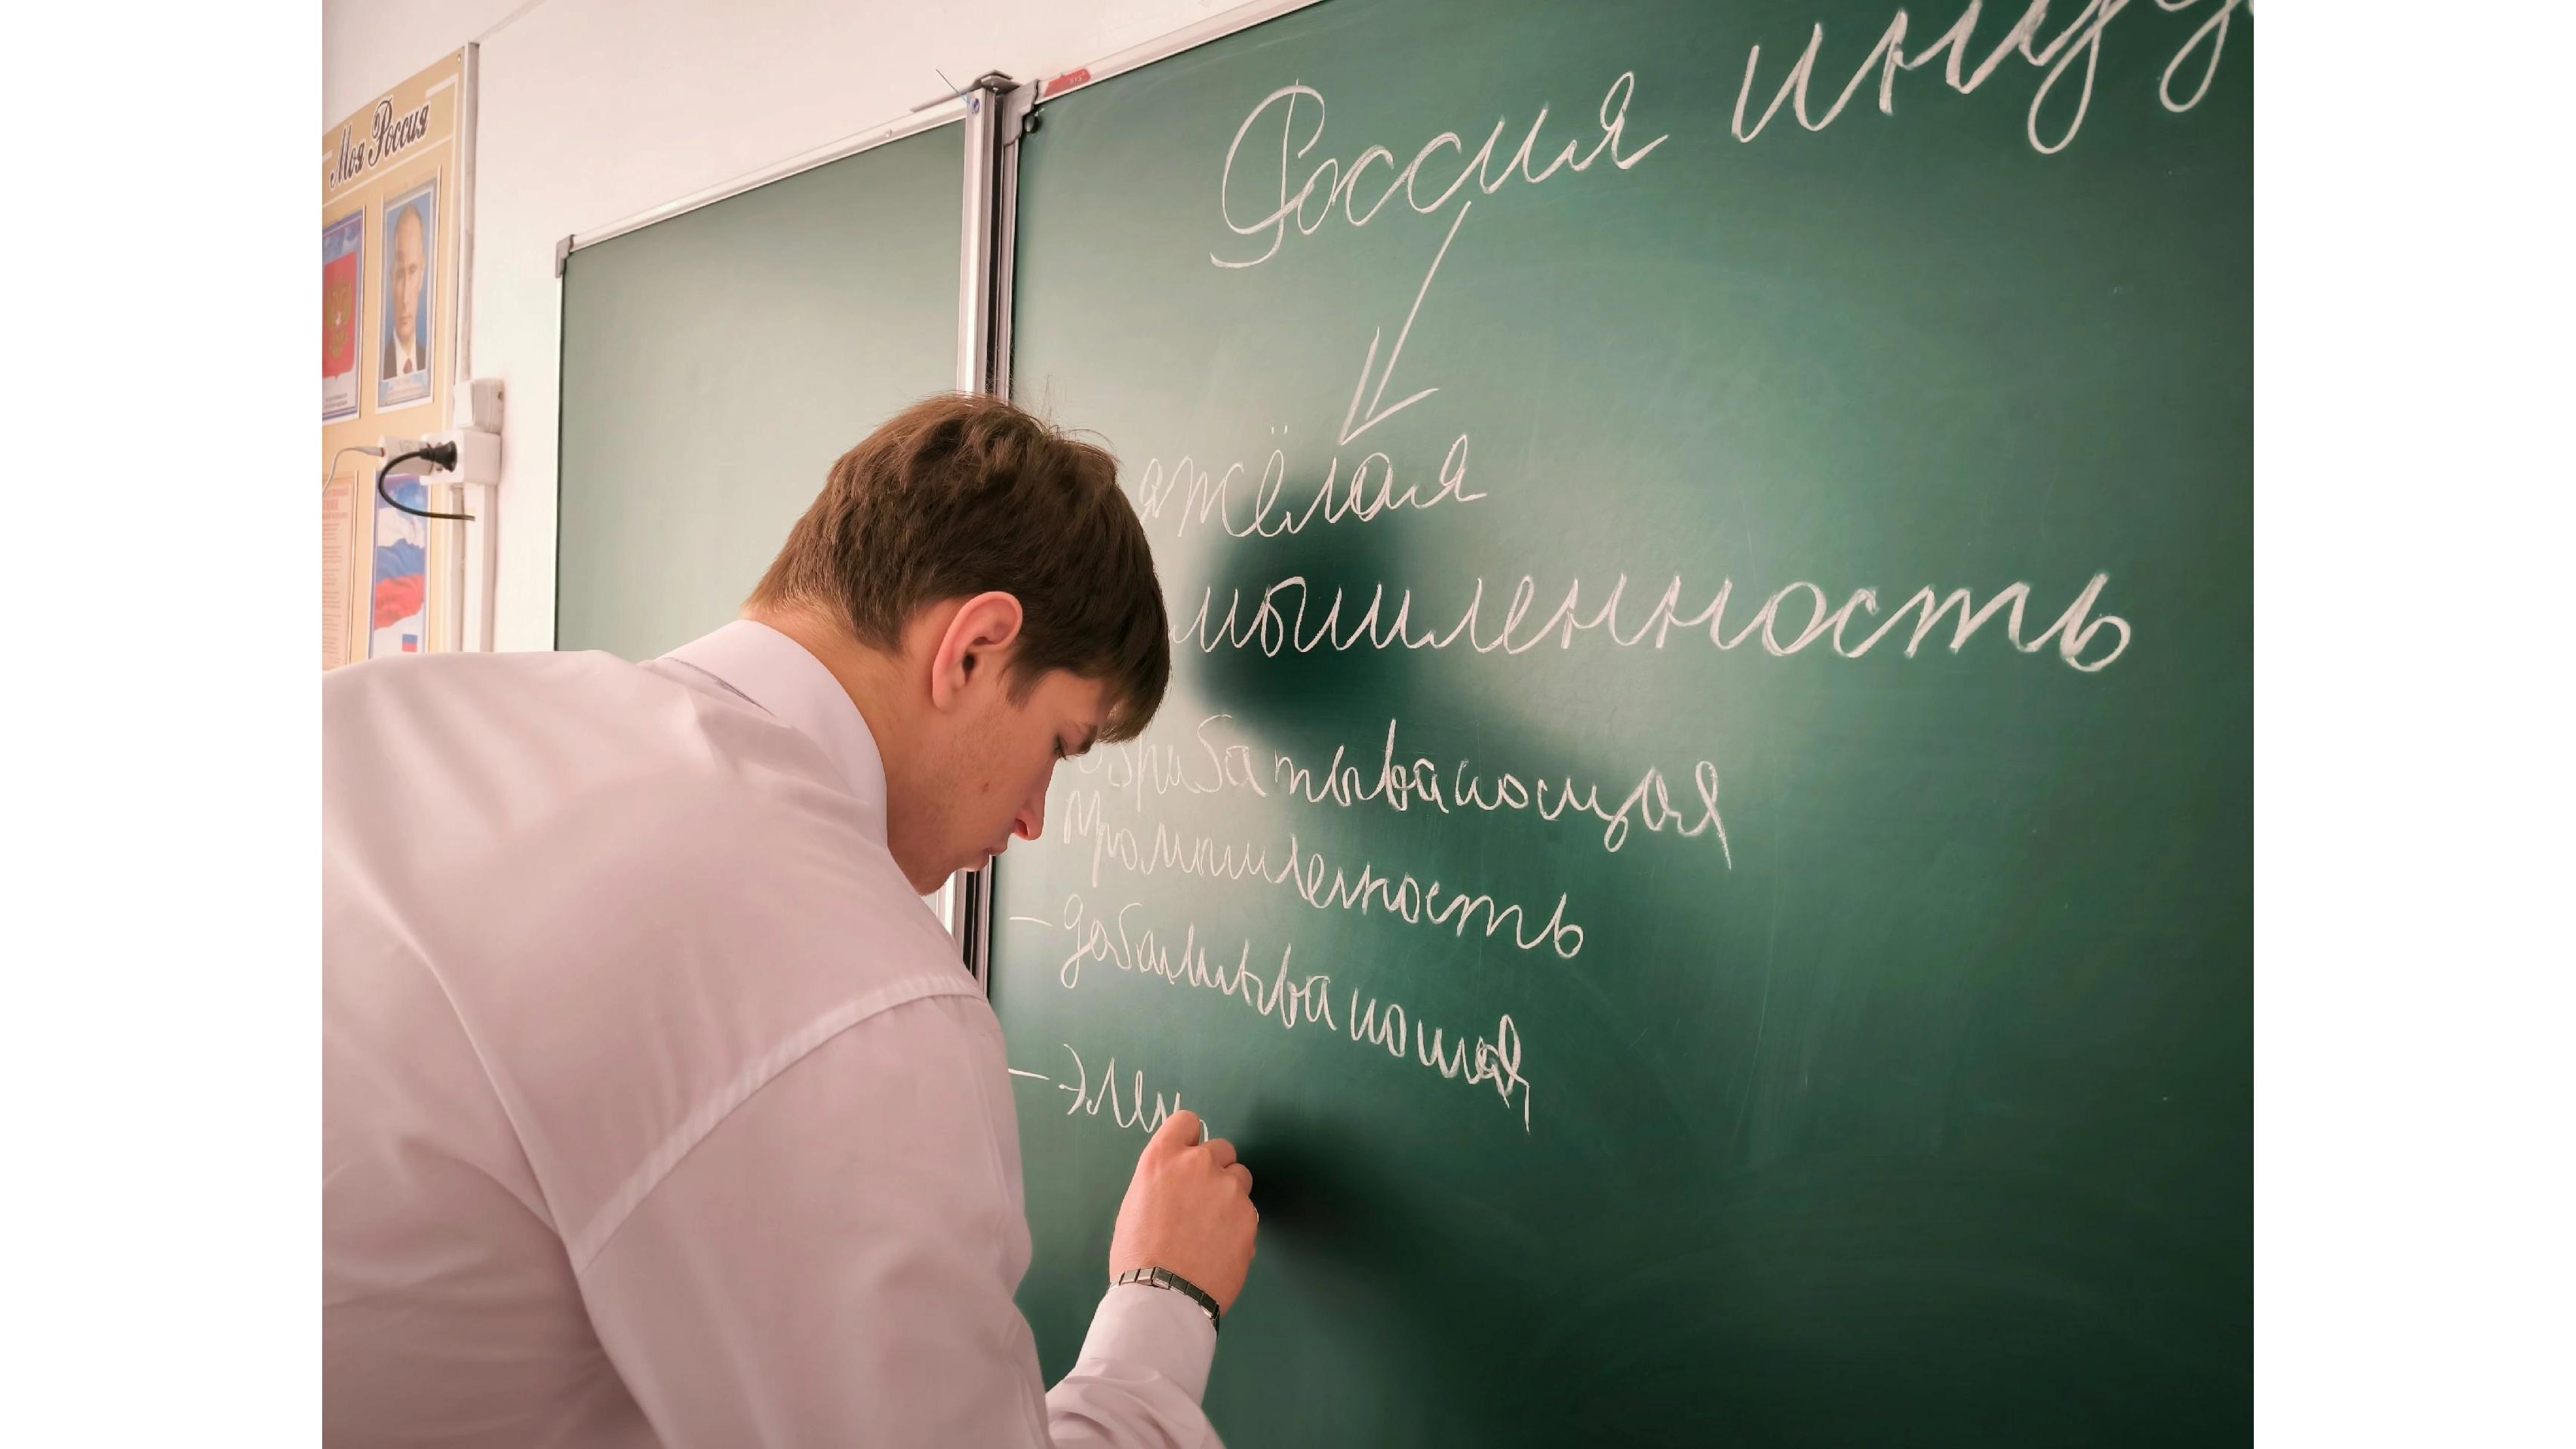 Моя Россия
Россия инду
яжёлая
мышленность
обрабатывающая
промышленность
– добатывающая
– элек